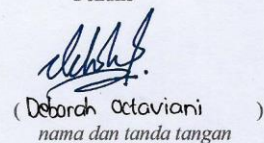 ( Deborah Octaviani )
nama dan tanda tangan